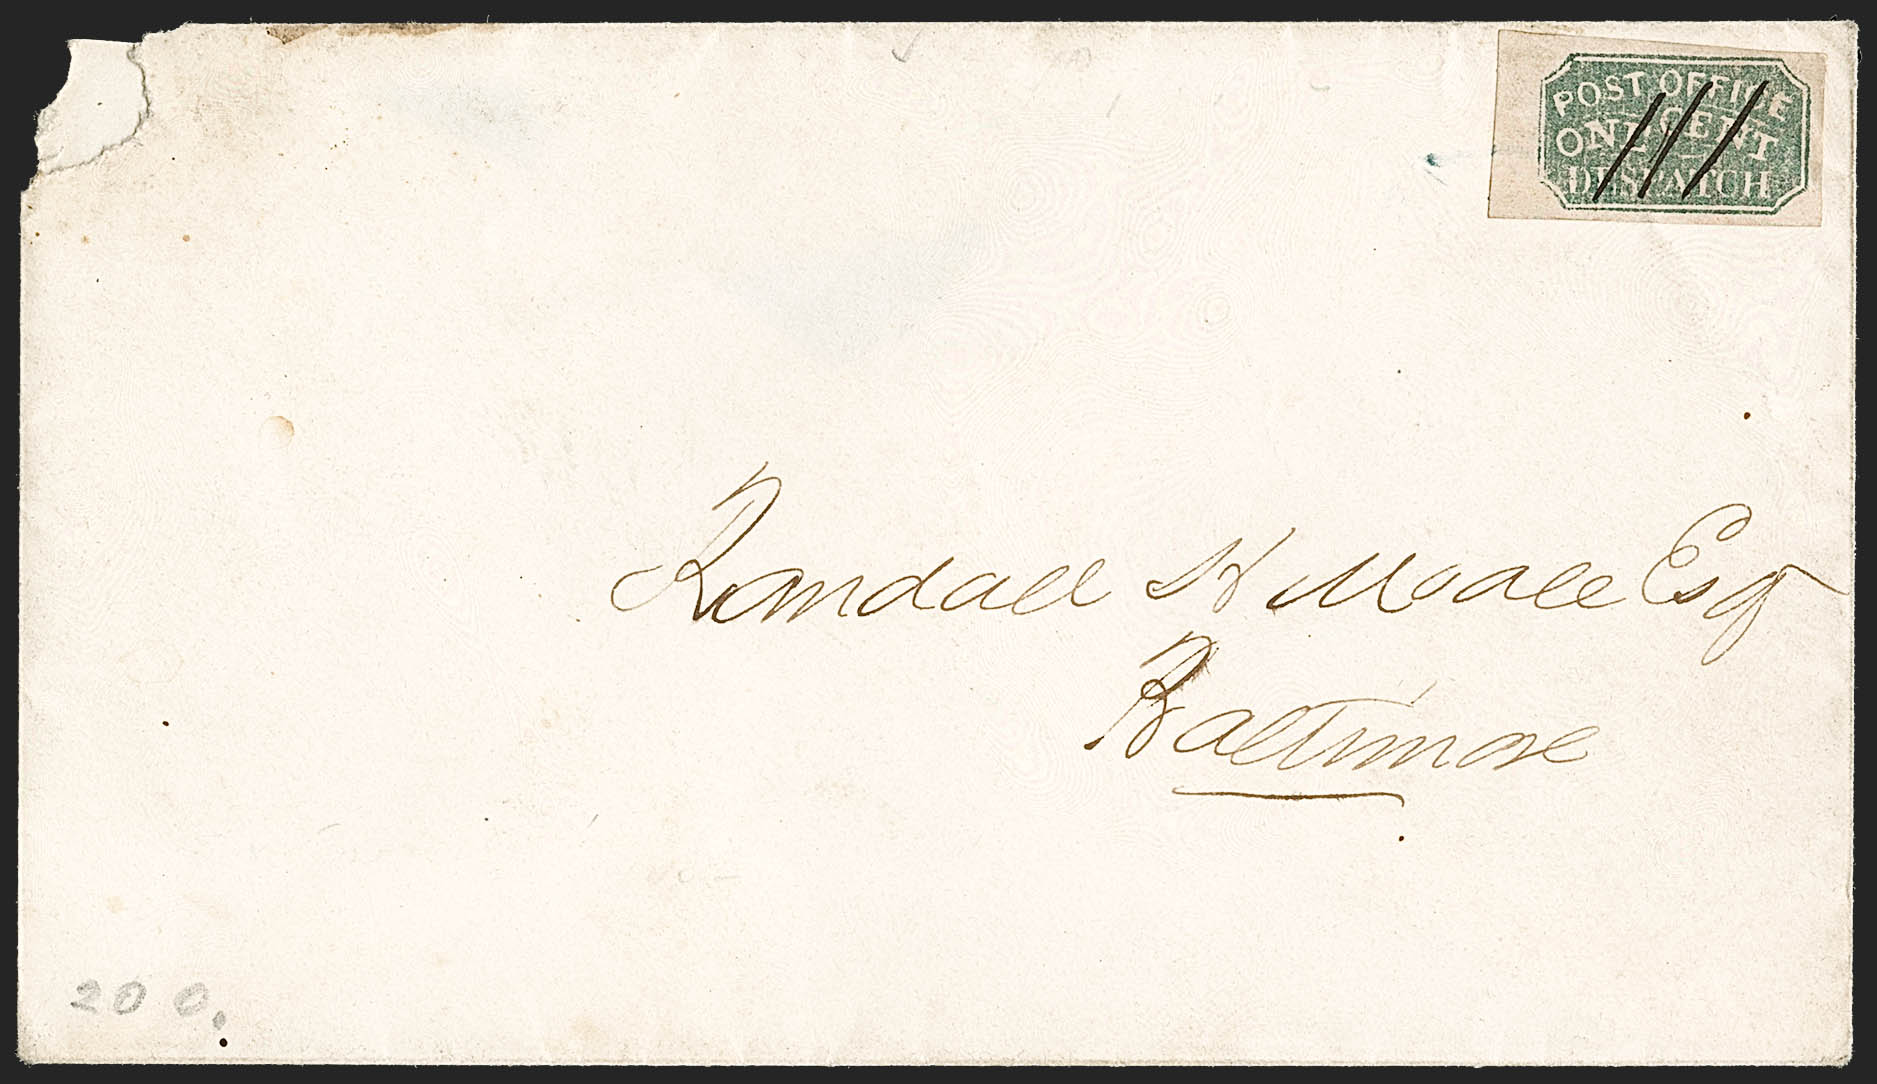 POST OFFICE
ONE CENT
DESPATCH
Randall H Moale Esq
Baltimore
200.